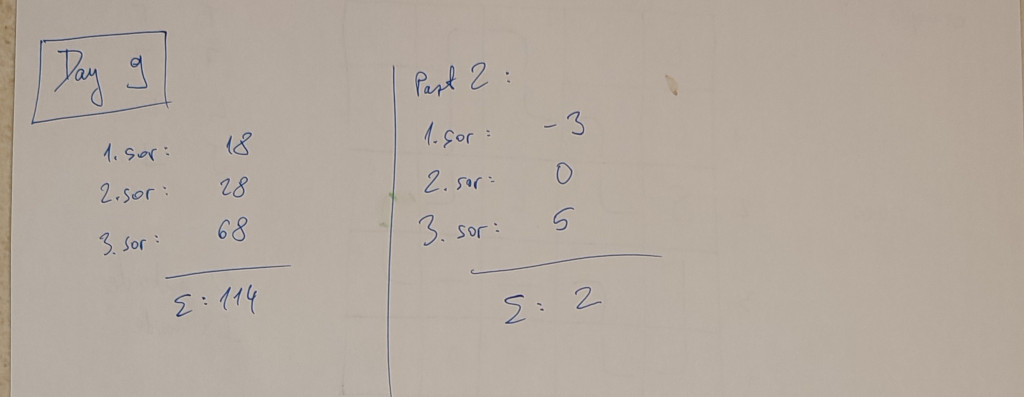 Day 9
1. sor: 18
2. sor: 28
3. sor: 68
Σ: 114
Part 2:
1. sor: -3
2. sor: 0
3. sor: 5
Σ: 2